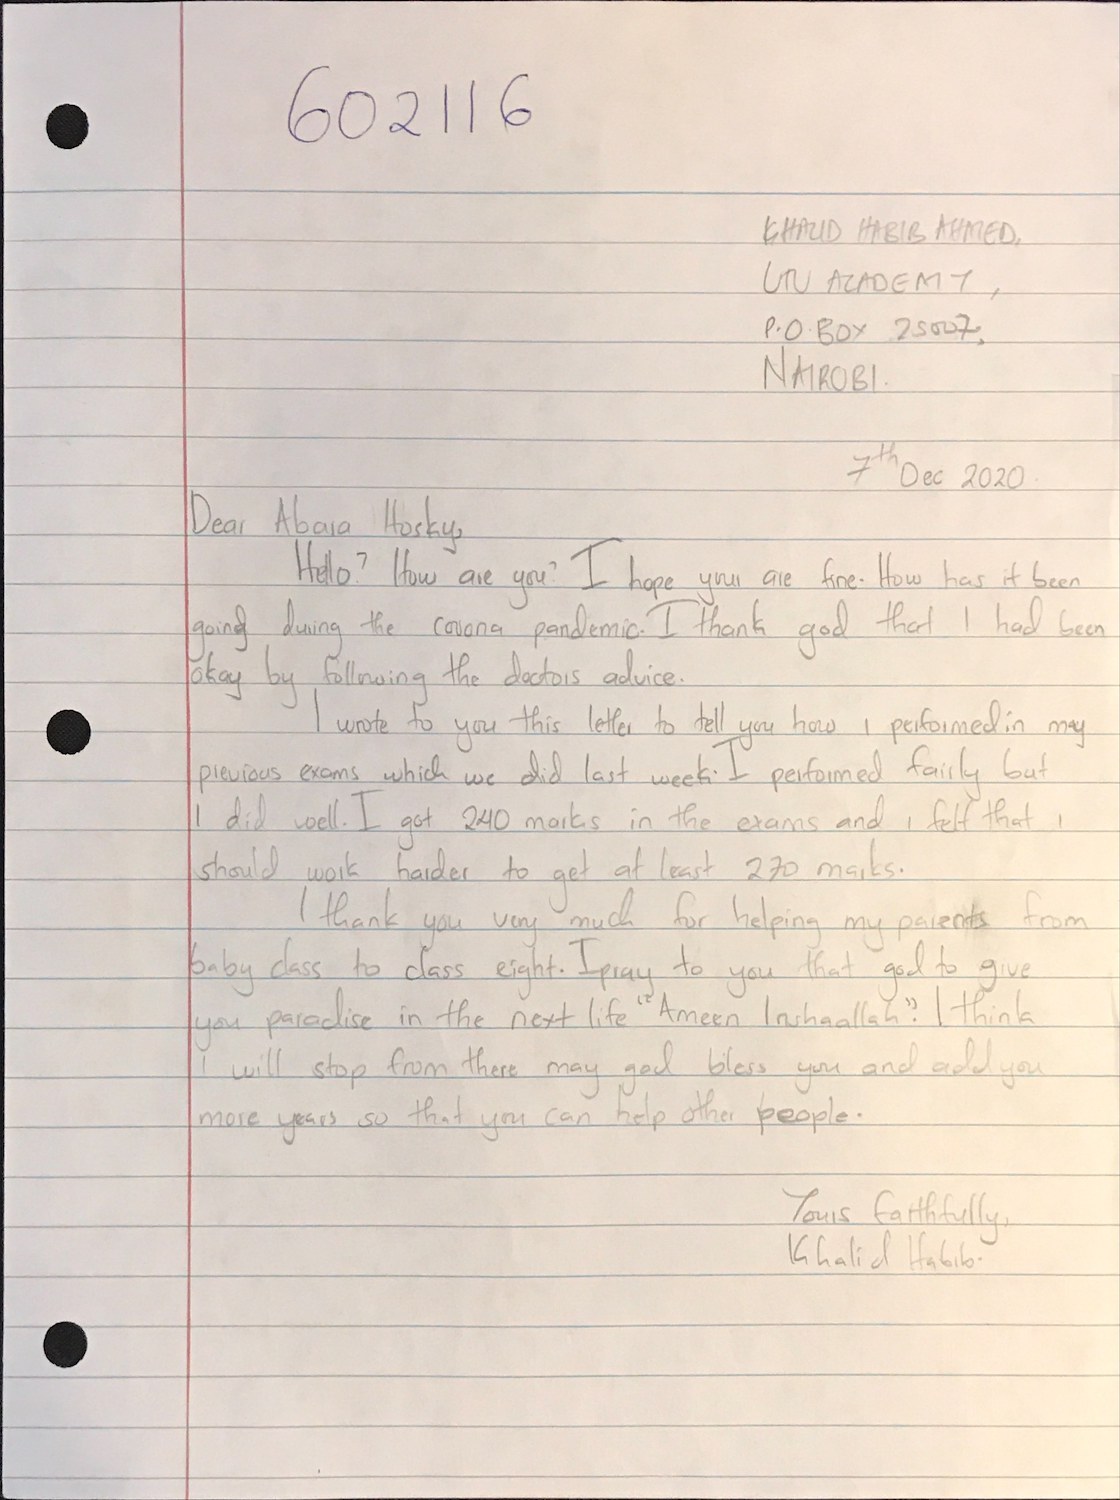 602116
KHALID HABIB AHMED,
UTU ACADEMY,
P.O.BOX 25007,
NAIROBI.
7th Dec 2020.
Dear Abara Hosky,
Hello? How are you? I hope your are fine. How has it been
going during the corona pandemic. I thank god that I had been
okay by following the doctors advice.
I wrote to you this letter to tell you how i performed in my
previous exams which we did last week. I performed fairly but
I did well. I got 240 marks in the exams and i felt that i
should work harder to get at least 270 marks.
I thank you very much for helping my parents from
baby class to class eight. I pray to you that god to give
you paradise in the next life "Ameen Inshaallah". I think
i will stop from there may god bless you and add you
more years so that you can help other people.
Yours faithfully,
Khalid Habib.